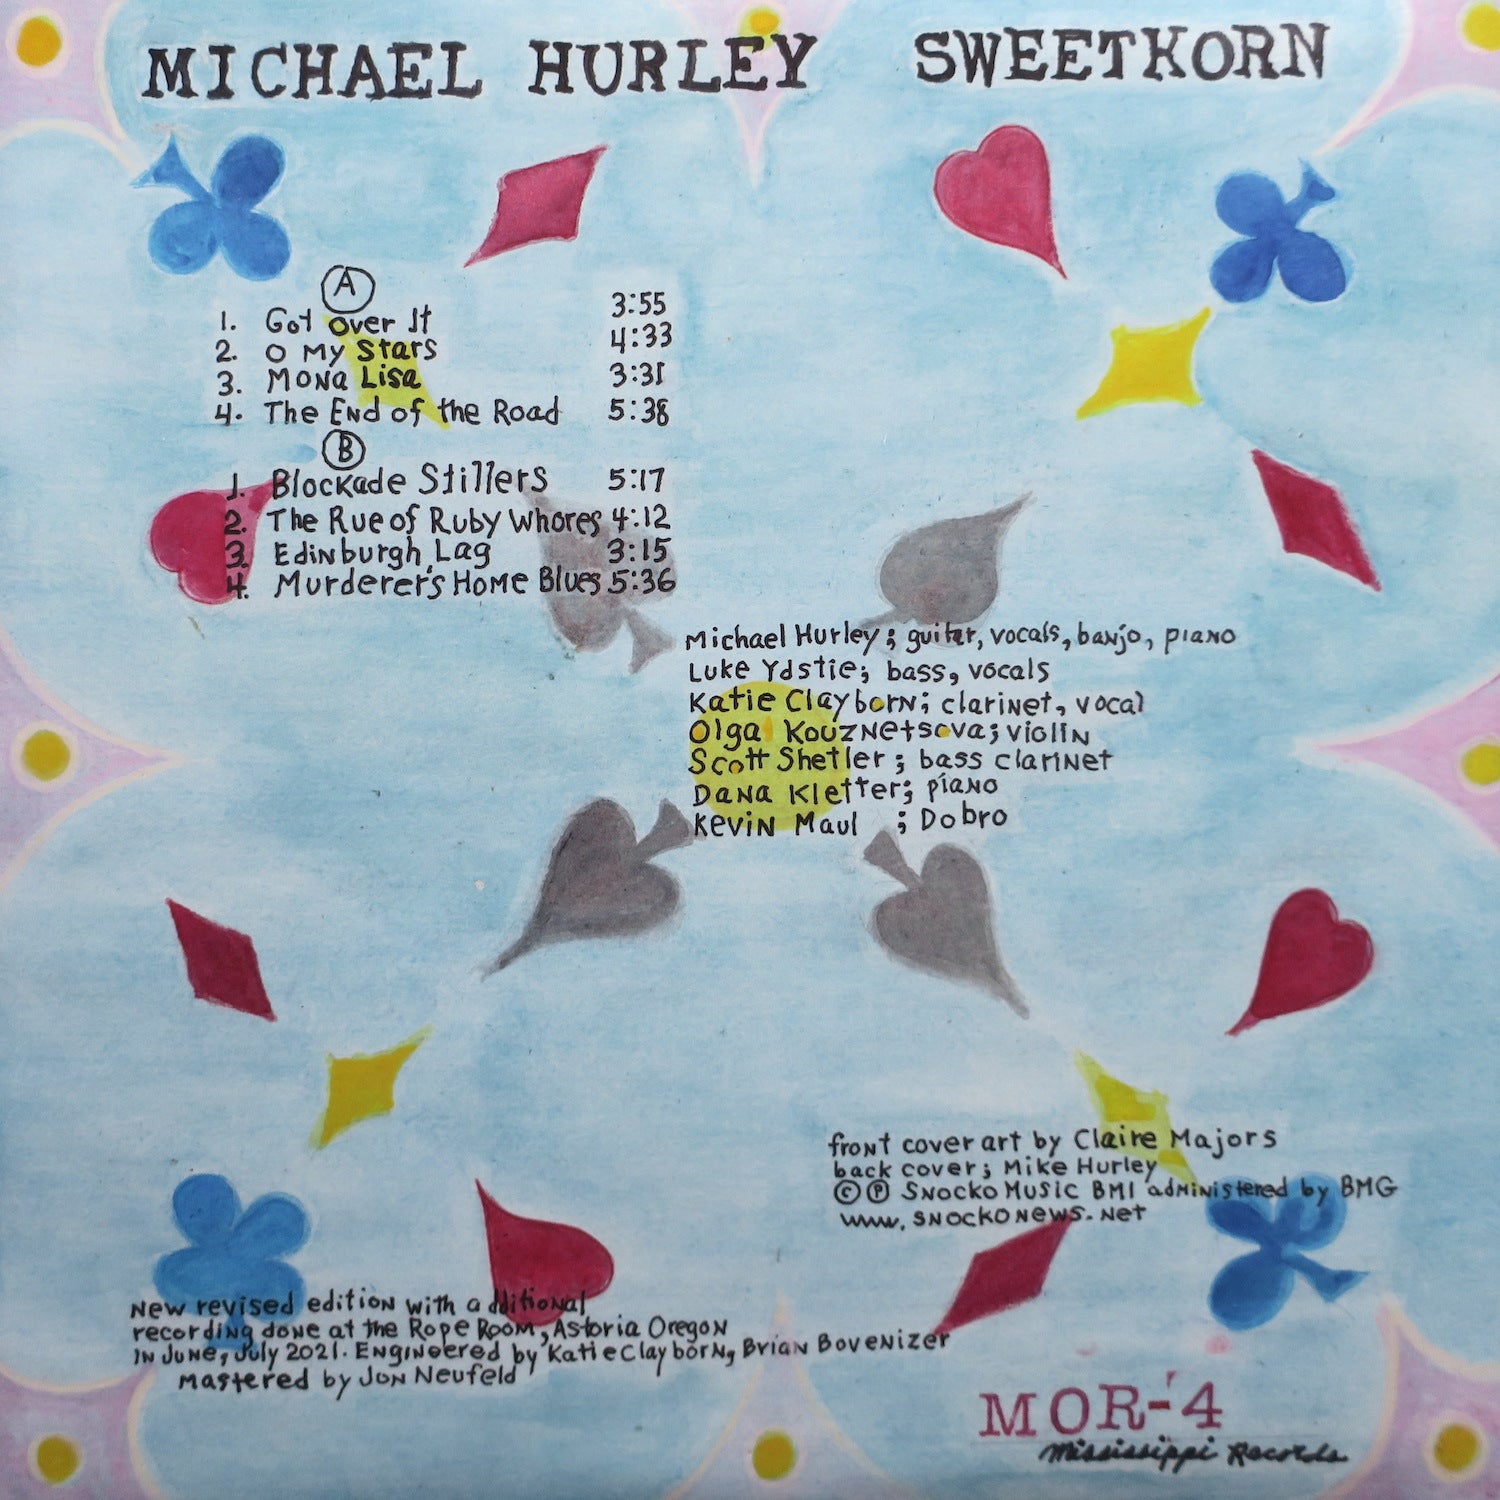 MICHAEL HURLEY SWEETKORN
A
1. Got over It 3:55
2. O My Stars 4:33
3. Mona Lisa 3:31
4. The End of the Road 5:38
B
1. Blockade Stillers 5:17
2. The Rue of Ruby Whores 4:12
3. Edinburgh Lag 3:15
4. Murderer's Home Blues 5:36
Michael Hurley; guitar, vocals, banjo, piano
Luke Ydstie; bass, vocals
Katie Clayborn; clarinet, vocal
Olga Kouznetsova; violin
Scott Shetler; bass clarinet
Dana Kletter; piano
Kevin Maul ; Dobro
front cover art by Claire Majors
back cover; Mike Hurley
© ℗ Snocko Music BMI administered by BMG
www.snockonews.net
New revised edition with additional
recording done at the Rope Room, Astoria Oregon
in June, July 2021. Engineered by Katie Clayborn, Brian Bovenizer
Mastered by Jon Neufeld
MOR-4
Mississippi Records